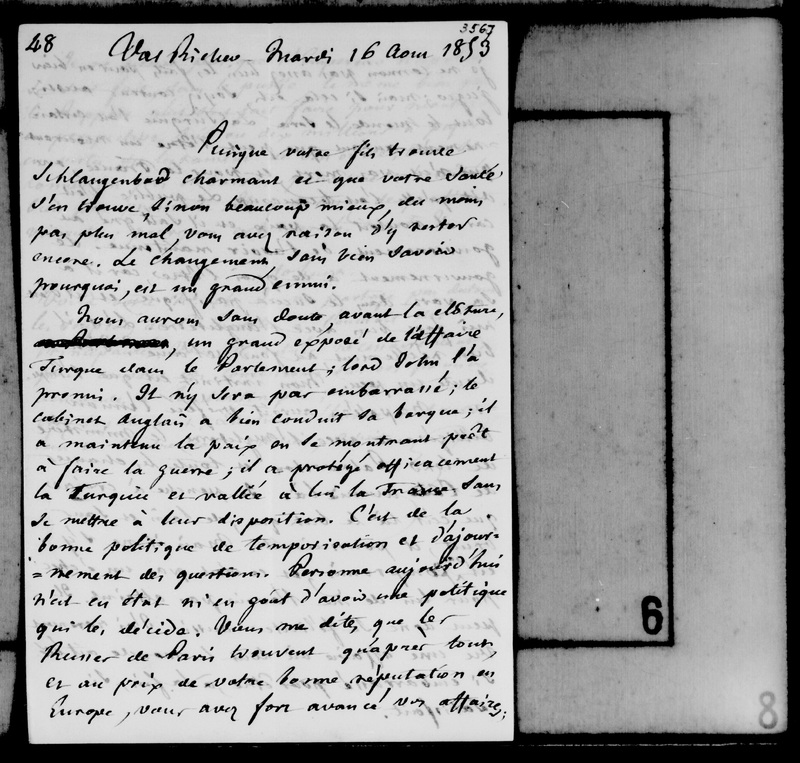 3567
48 Val Richer - Mardi 16 Aout 1853
Puisque votre fils trouve
Schlangenbad charmant et que votre santé
s'en trouve, sinon beaucoup mieux, du moins
pas plus mal, vous avez raison d'y rester
encore. Le changement, sans bien savoir
pourquoi, est un grand ennui.
Nous aurons sans doute avant la clôture,
, un grand exposé de l'affaire
Turque dans le Parlement ; lord John l'a
promis. Il n'y sera pas embarrassé ; le
cabinet Anglais a bien conduit sa barque ; il
a maintenu la paix en se montrant prêt
à faire la guerre ; il a protégé efficacement
la Turquie et rallié à lui la France sans
se mettre à leur disposition. C'est de la
bonne politique de temporisation et d'ajour-
=nement des questions. Personne aujourd'hui
n'est en état ni en goût d'avoir une politique
qui les décide. Vous me dites que les
Russes de Paris trouvent qu'après tout,
et au prix de votre bonne réputation en
Europe, vous avez fort avancé vos affaires ;
6
8